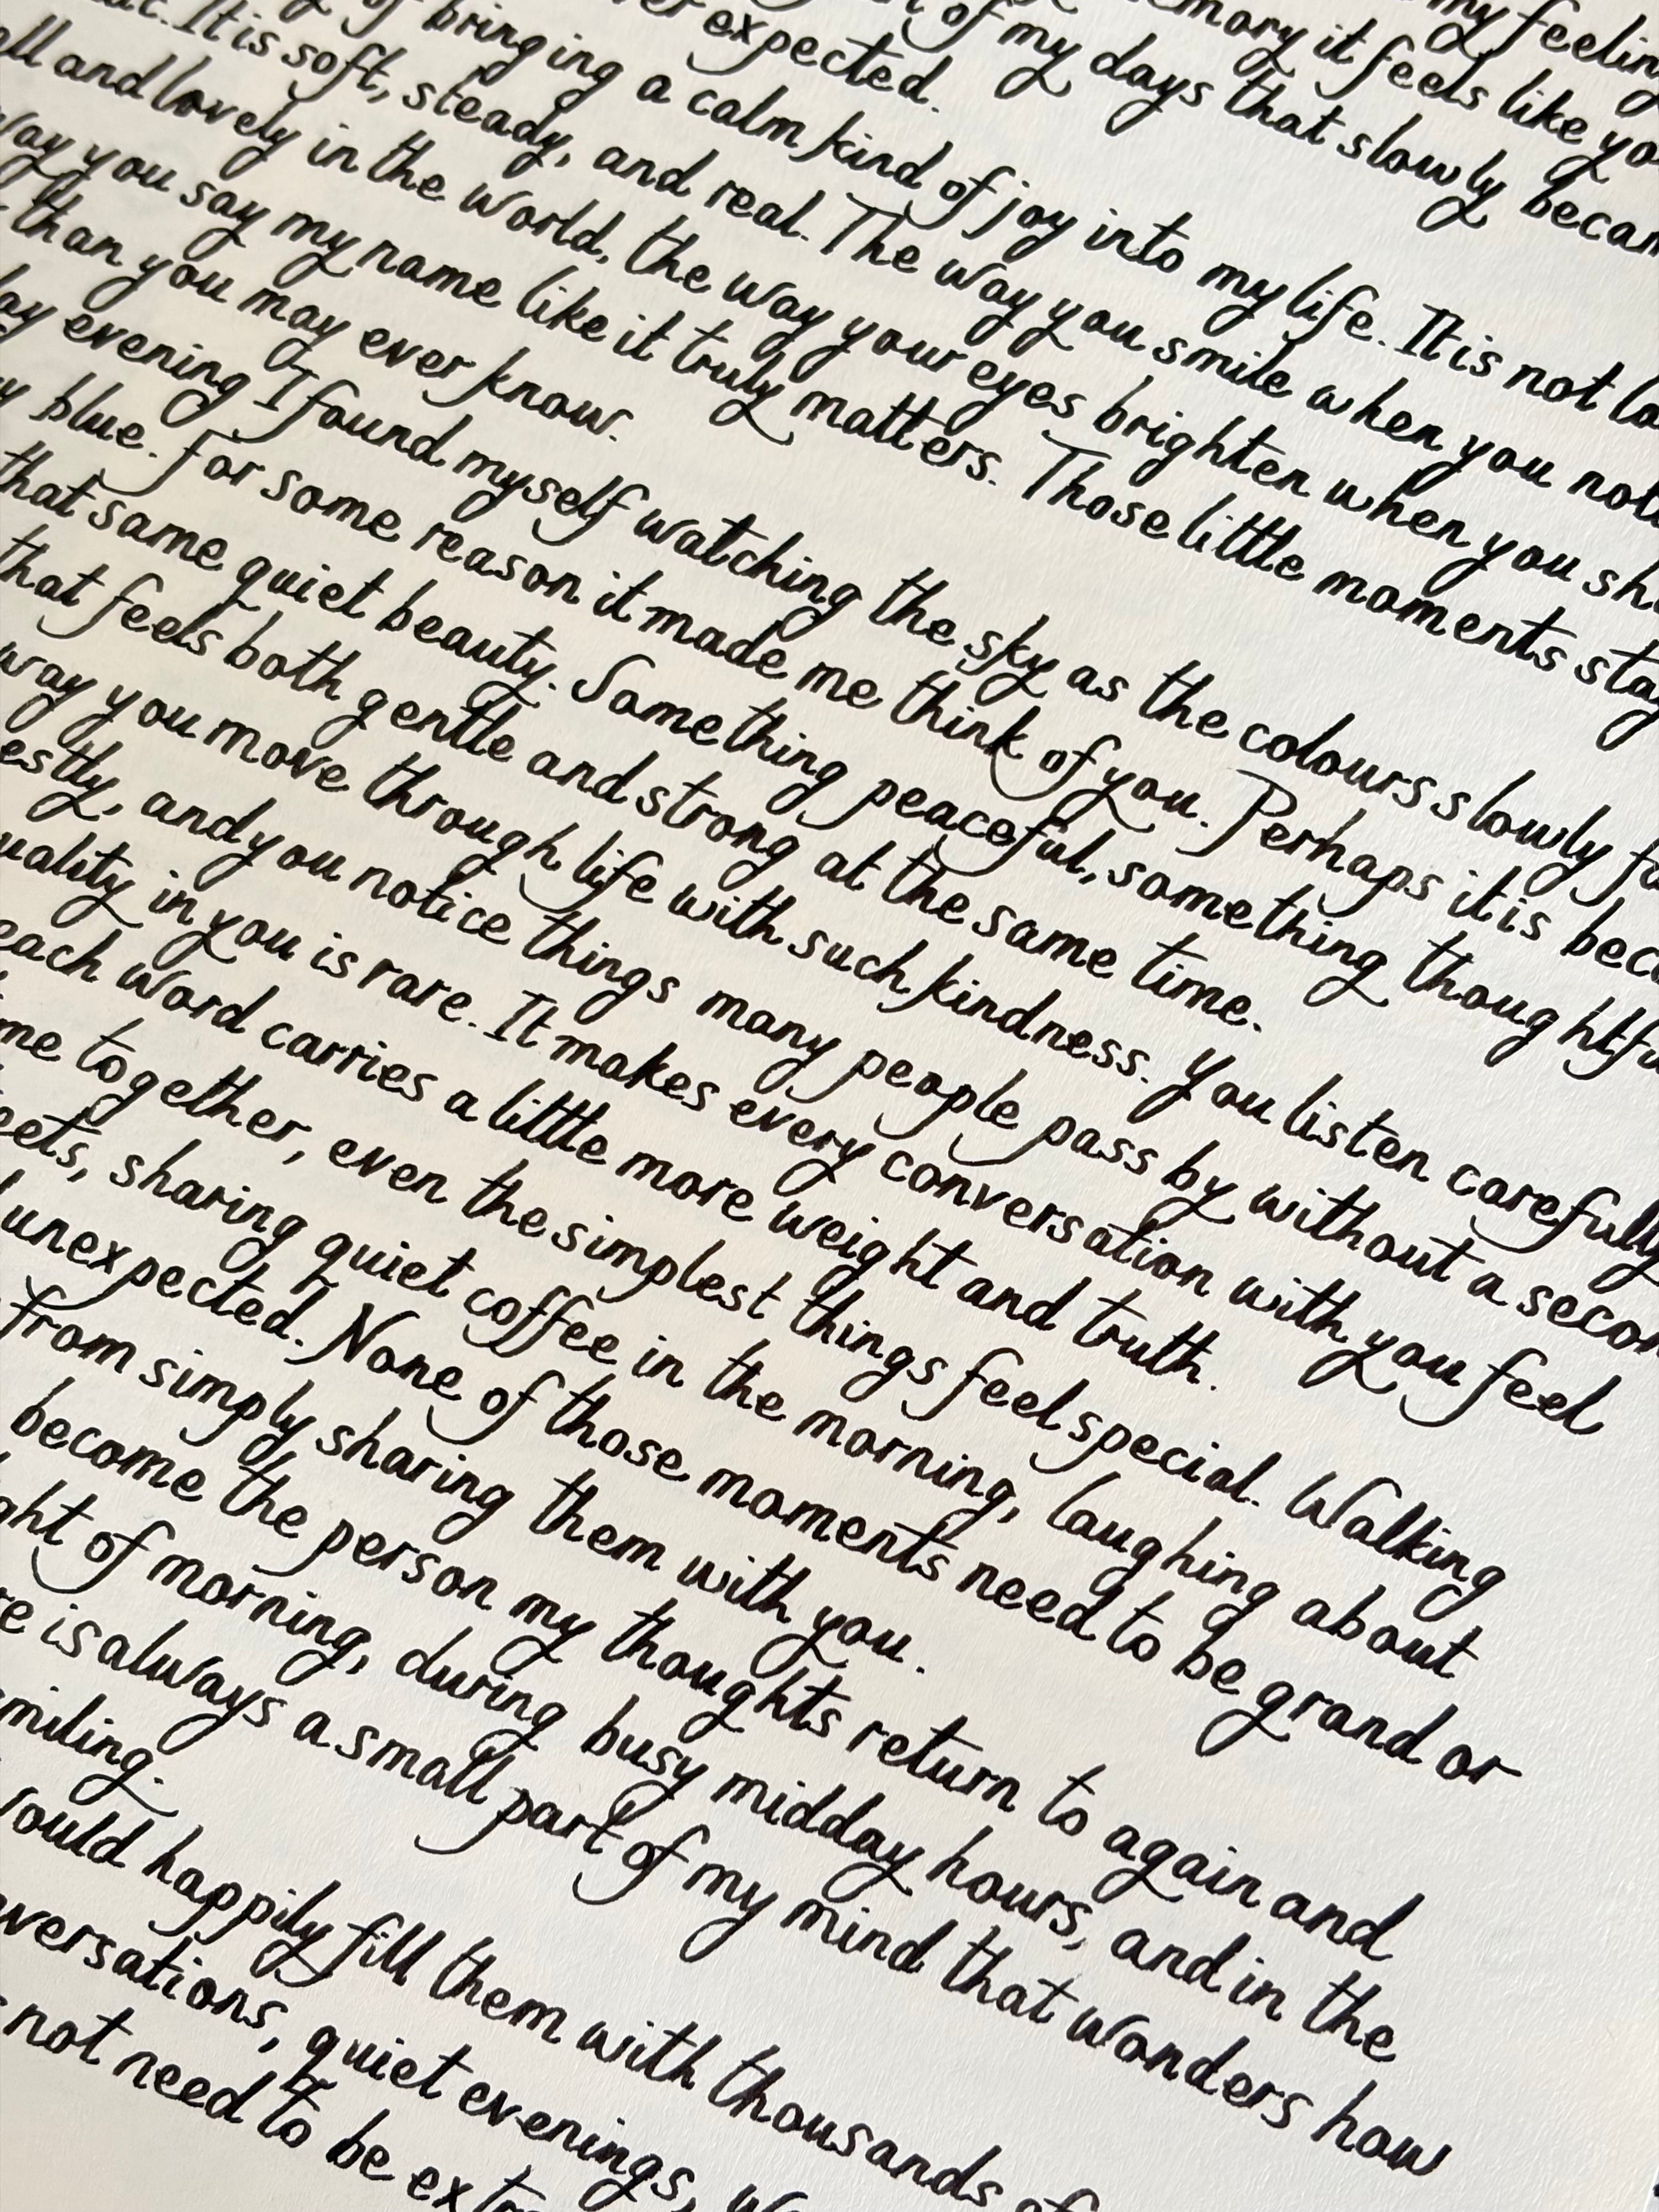 my feeling
memory it feels like yo
of my days that slowly becam
er expected.
of bringing a calm kind of joy into my life. It is not lo
It is soft, steady, and real. The way you smile when you noti
all and lovely in the world, the way your eyes brighten when you sh
way you say my name like it truly matters. Those little moments stay
than you may ever know.
ay evening I found myself watching the sky as the colours slowly fa
y blue. For some reason it made me think of you. Perhaps it is beca
that same quiet beauty. Something peaceful, something thoughtfu
that feels both gentle and strong at the same time.
way you move through life with such kindness. You listen carefully
estly, and you notice things many people pass by without a secon
uality in you is rare. It makes every conversation with you feel
each word carries a little more weight and truth.
me together, even the simplest things feel special. Walking
eets, sharing quiet coffee in the morning, laughing about
unexpected. None of those moments need to be grand or
from simply sharing them with you.
become the person my thoughts return to again and
ght of morning, during busy midday hours, and in the
re is always a small part of my mind that wonders how
miling.
ould happily fill them with thousands of
versations, quiet evenings, w
not need to be extr